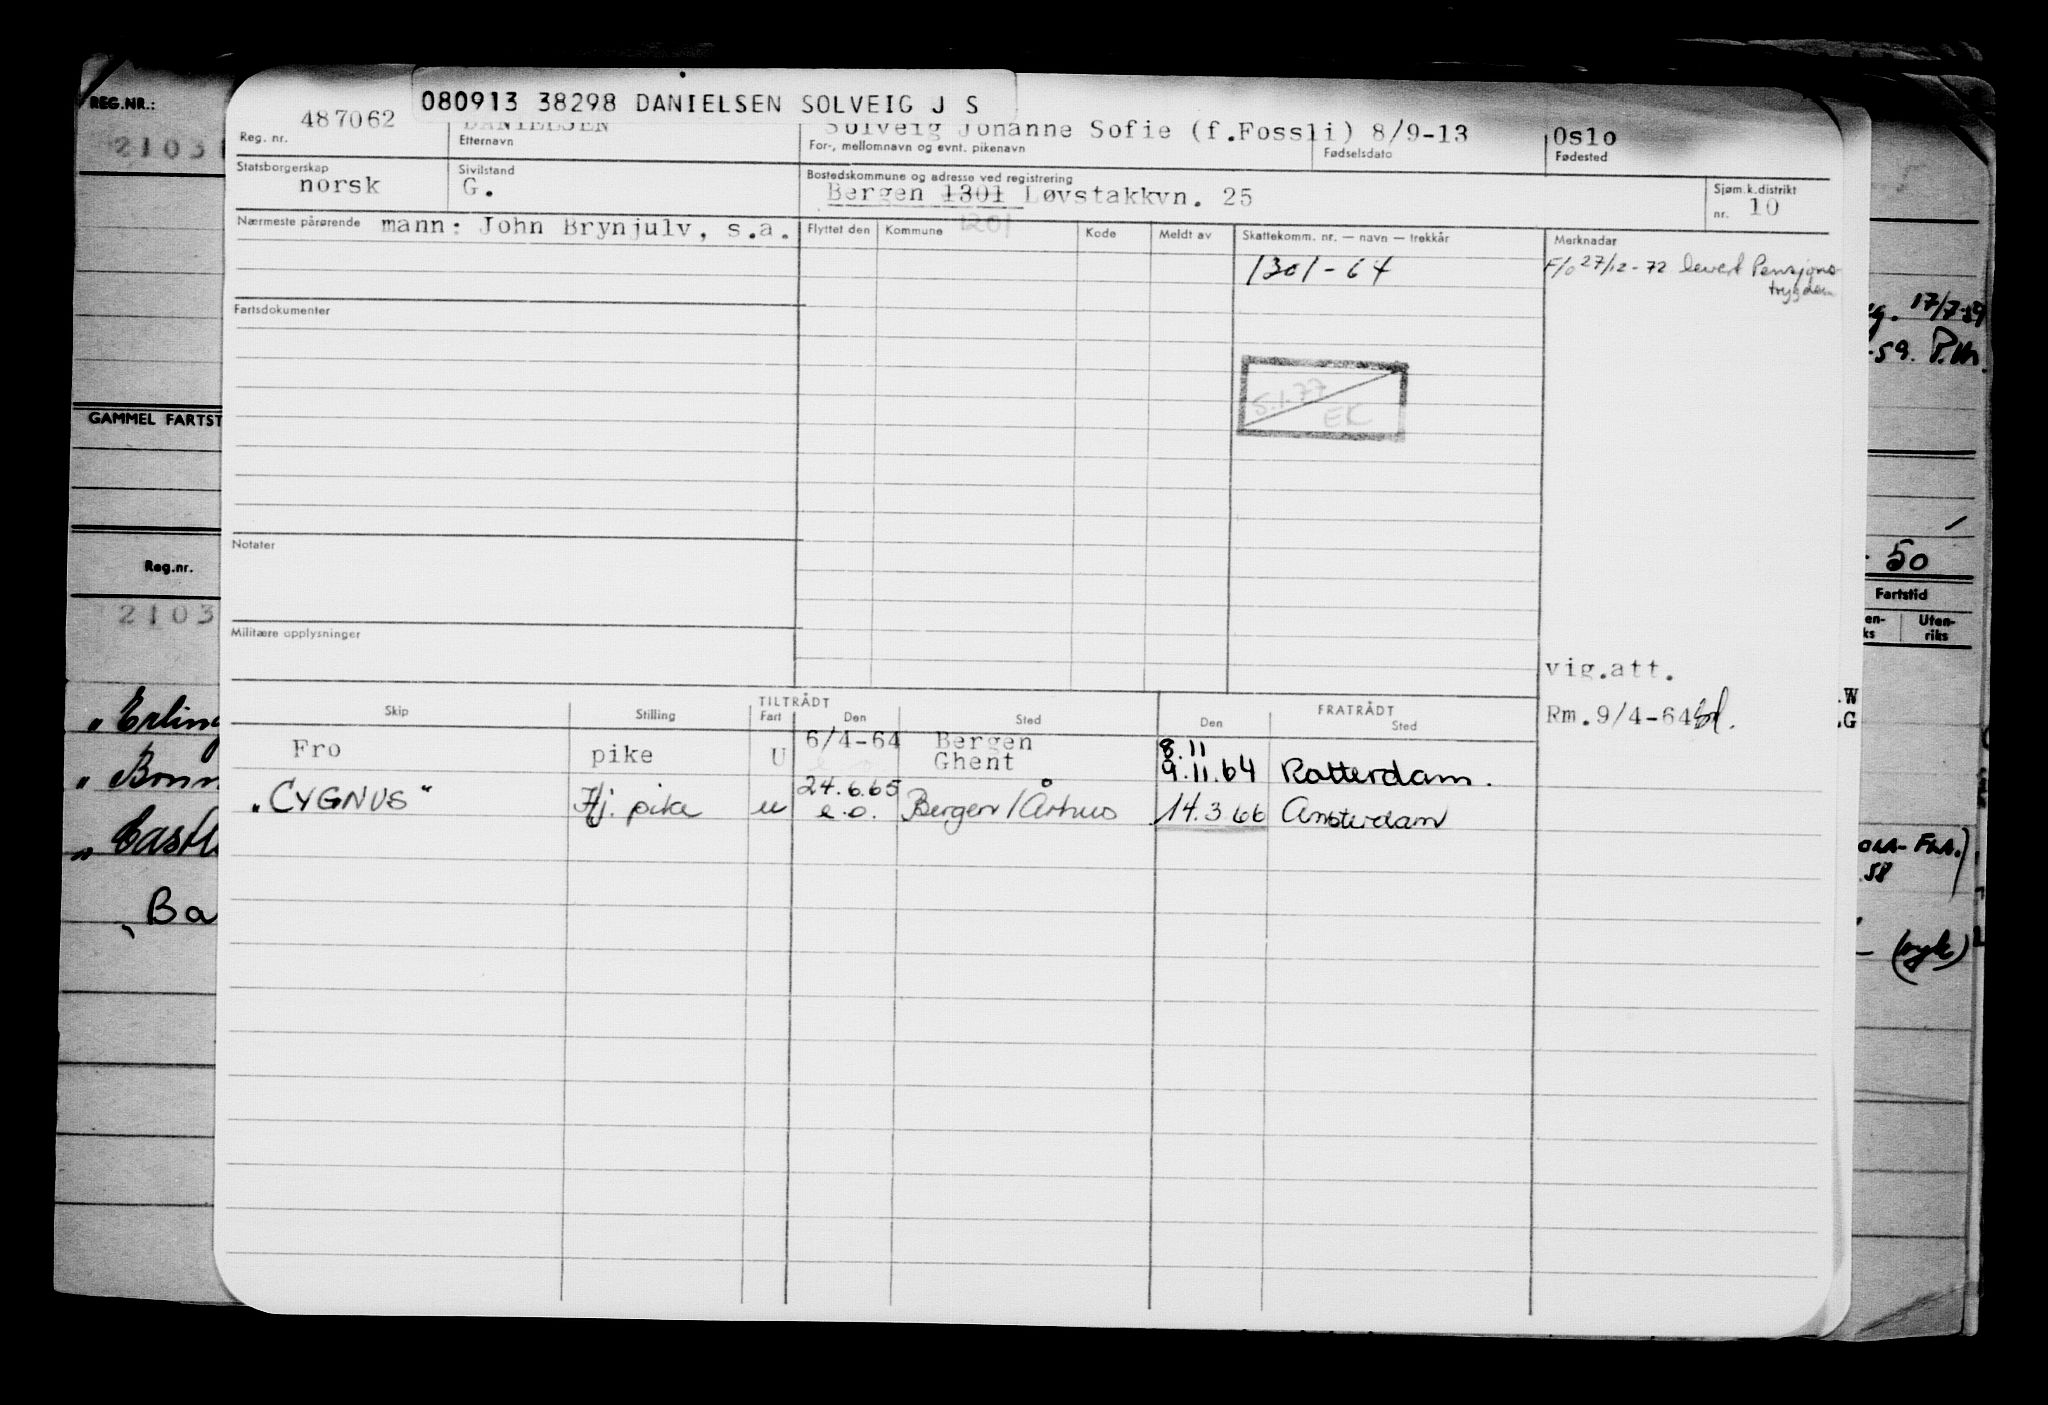 REG.NR.:
080913 38298 DANIELSEN SOLVEIG J S
487062 DANIELSEN Solveig Johanne Sofie (f.Fossli) 8/9-13 Oslo
Reg. nr. Etternavn For-, mellomnavn og evnt. pikenavn Fødselsdato Fødested
Statsborgerskap Sivilstand Bostedskommune og adresse ved registrering Sjøm.k.distrikt
norsk G. Bergen 1301 Løvstakkvn. 25 nr. 10
Nærmeste pårørende mann: John Brynjulv, s.a. Flyttet den Kommune 1201 Kode Meldt av Skattekomm. nr. — navn — trekkår Merknader
1301-64 F/o 27/12-72 levert Pensjons-
trygden
17/7-59
Fartsdokumenter
-59. P.M.
5.1.77
EK
GAMMEL FARTST
Notater
Reg.nr. - 50
2103 Fartstid
Militære opplysninger
Uten-
riks
vig.att.
TILTRÅDT FRATRÅDT
Skip Stilling Fart Den Sted Den Sted
Rm. 9/4-64
Fro pike U 6/4-64 Bergen 8.11
Ghent 9.11.64 Rotterdam.
"CYGNUS" Hj. pike u 24.6.65 Bergen/Århus 14.3.66 Amsterdam
e.o.
„Erling
„Bonn
„Eastl
.58
„Ba